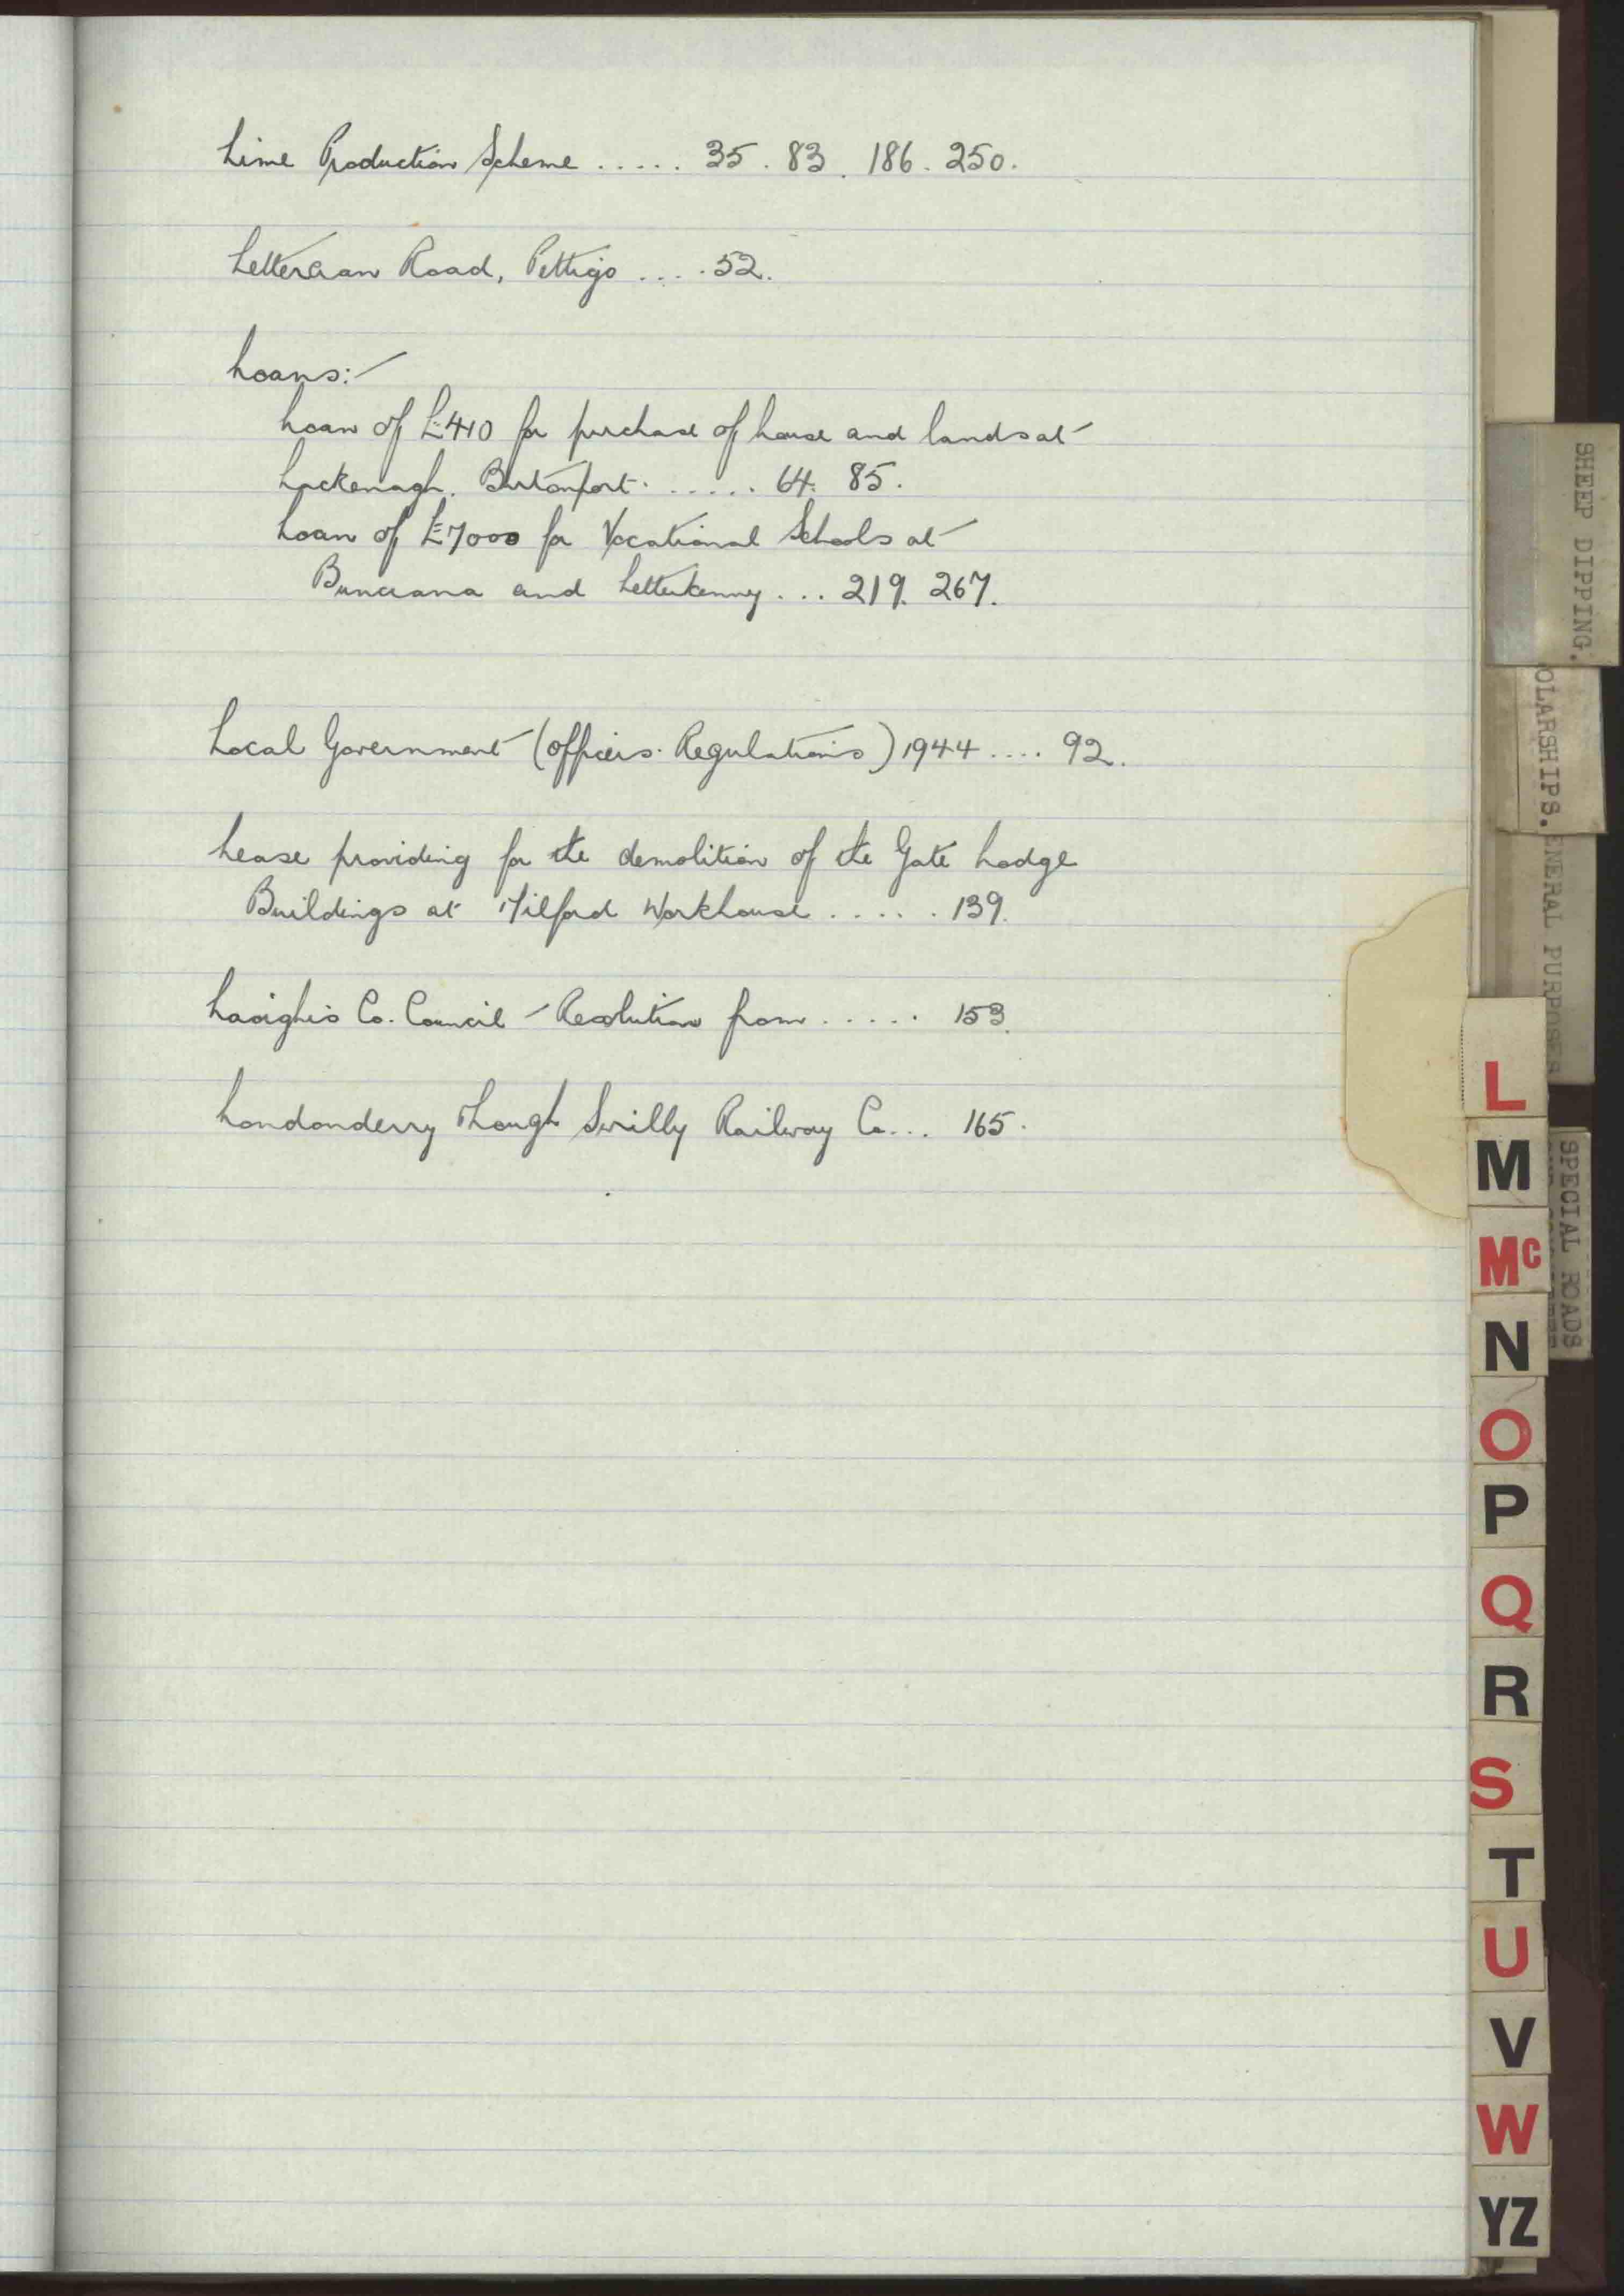 Lime Production Scheme ..... 35. 83. 186. 250.
Lettercran Road, Pettigo .... 52.
Loans:-
Loan of £410 for purchase of house and lands at
Lackenagh. Burtonport. ..... 64. 85.
Loan of £7000 for Vocational Schools at
Buncrana and Letterkenny ... 219. 267.
Local Government (Officers. Regulations) 1944 .... 92.
Lease providing for the demolition of the Gate Lodge
Buildings at Milford Workhouse ..... 139.
Laoighis Co. Council - Resolution from ..... 153.
Londonderry & Lough Swilly Railway Co... 165.
SHEEP DIPPING.
OLARSHIPS.
ENERAL PURPOSES
SPECIAL ROADS
L
M
Mc
N
O
P
Q
R
S
T
U
V
W
YZ